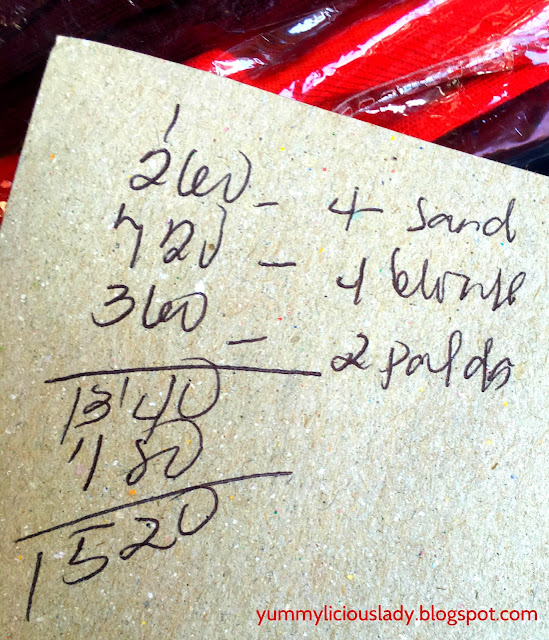 1
260 - 4 sand
720 - 4 blouse
360 - 2 palda
1340
180
1520
yummyliciouslady.blogspot.com